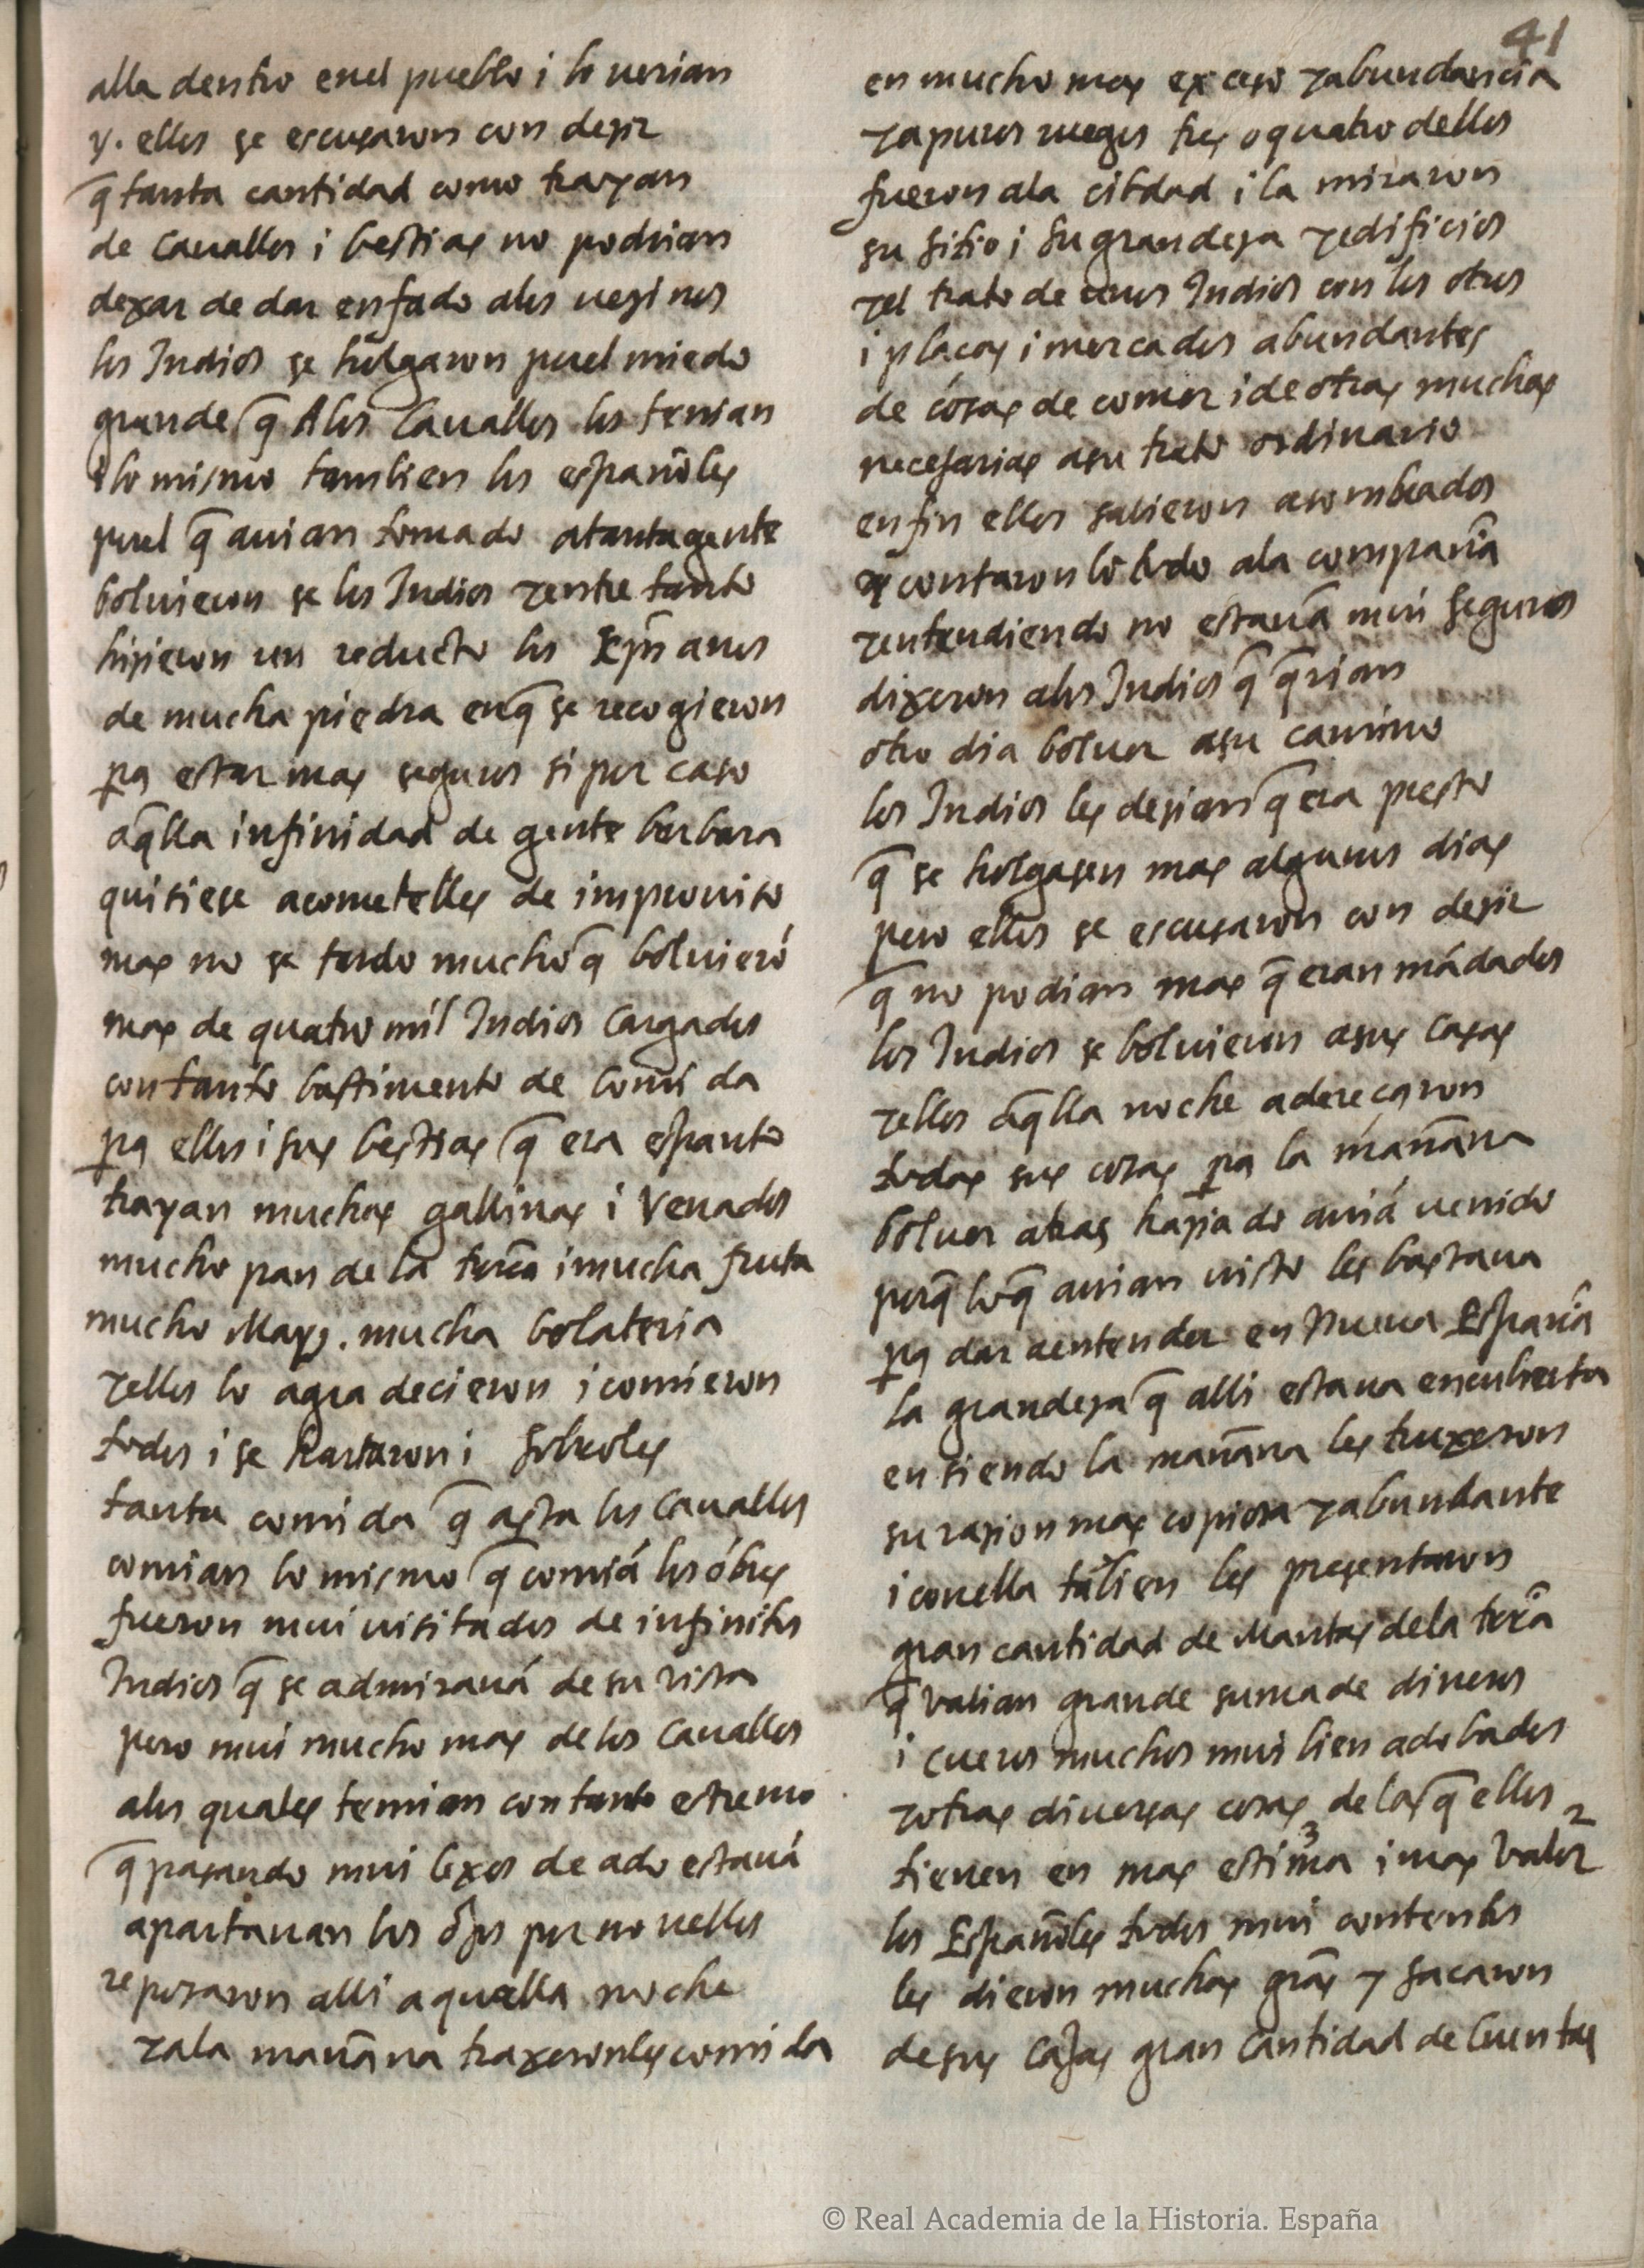 41
alla dentro enel pueblo i lo uerian
y. ellos se escusaron con desir
q̃ tanta cantidad como trayan
de Cauallos i bestias no podrian
dexar de dar enfado alos uesinos
los Indios se holgaron porel miedo
grande q̃ A los Cauallos los tenian
i lo mismo tambien los españoles
porel q̃ auian tomado atanta gente
boluieron se los Indios y entre tanto
hisieron un reducto los Xp̃ianos
de mucha piedra en q̃ se recogieron
pa estar mas seguros si por caso
aq̃lla infinidad de gente barbara
quisiese acometelles de improuiso
mas no se tardo mucho q̃ boluieró
mas de quatro mil Indios Cargados
con tanto bastimento de Comida
pa ellos i sus bestias q̃ era espanto
trayan muchas gallinas i Venados
mucho pan de la tierra i mucha fruta
mucho Mays. mucha bolateria
y ellos lo agradecieron i comieron
todos i se hartaron i sobroles
tanta comida q̃ asta los Cauallos
comian lo mismo q̃ comiá los óbres
fueron mui uisitados de infinitos
Indios q̃ se admirauá de su vista
pero mui mucho mas delos Cauallos
alos quales temian con tanto estremo
q̃ pasando mui lexos de ado estauá
apartauan los ojos por no uellos
reposaron alli aquella noche
y ala mañana traxeronles comida
en mucho mas exceso y abundancia
y apuros ruegos tres o quatro dellos
fueron ala cibdad i la miraron
su sitio i su grandesa y edificios
y el trato de unos Indios con los otros
i placas i mercados abundantes
de cosas de comer i de otras muchas
necesarias asu trato ordinario
enfin ellos salieron asombrados
y contaron lo todo ala compañia
y entendiendo no estauã mui seguros
dixeron alos Indios q̃ q̃rian
otro dia boluer asu camino
los Indios les desian q̃ era presto
q̃ se holgasen mas algunos dias
pero ellos se escusaron con desir
q̃ no podian mas q̃ eran mádados
los Indios se boluieron asus casas
y ellos aq̃lla noche aderecaron
todas sus cosas pa la mañana
boluer atras hasia do auiá uenido
porq̃ lo q̃ auian uisto les bastaua
pa dar aentender en Nueua España
la grandesa q̃ alli estaua encubierta
en siendo la mañana les truxeron
su rasion mas copiosa y abundante
i con ella tãbien les presentaron
gran cantidad de Mantas dela tierra
q̃ valian grande suma de dineros
i cueros muchos mui bien adobados
y otras diuersas cosas de las q̃ ellos
tienen en mas estima i mas valor
los Españoles todos mui contentos
les dieron muchas grãs y sacaron
de sus Cajas gran cantidad de Cuentas
© Real Academia de la Historia. España